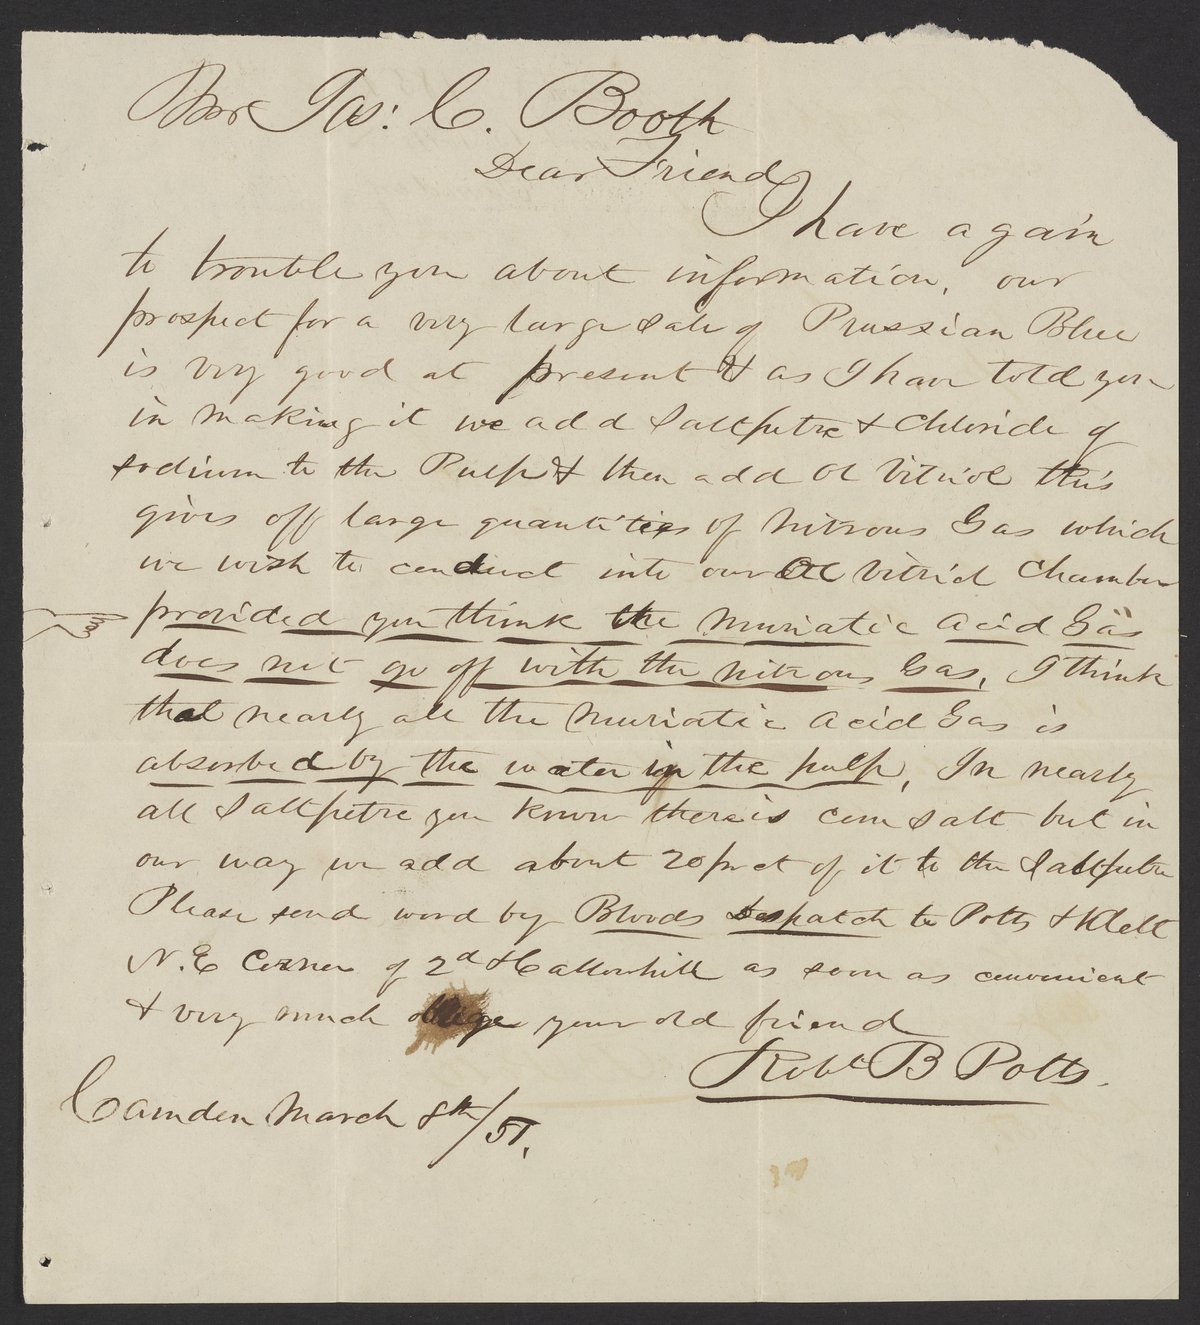 Mr Jas: C. Booth
Dear Friend
I have again
to trouble you about information, our
prospect for a very large sale of Prussian Blue
is very good at present & as I have told you
in making it we add Saltpetre & Chloride of
sodium to the Pulp & then add Ol Vitriol this
gives off large quantities of Nitrous Gas which
we wish to conduct into our Ol Vitriol Chamber
provided you think the Muriatic Acid Gas
does not go off with the Nitrous Gas, I think
that nearly all the Muriatic Acid Gas is
absorbed by the water in the pulp, In nearly
all Saltpetre you know there is com Salt but in
our way we add about 20 pr ct of it to the Saltpetre
Please send word by Bloods Despatch to Potts & Klett
N.E Corner of 2d & Callowhill as soon as convenient
& very much oblige your old friend
Robt B Potts.
Camden March 8th/51.